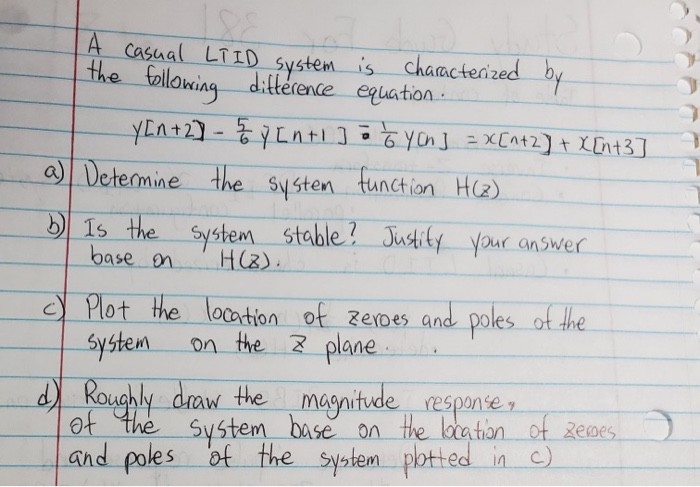 A casual LTID system is characterized by
the following difference equation.
y[n+2] - 5/6 y[n+1] = 1/6 y[n] = x[n+2] + x[n+3]
a) Determine the system function H(z)
b) Is the system stable? Justify your answer
base on H(z).
c) Plot the location of zeroes and poles of the
system on the z plane.
d) Roughly draw the magnitude response,
of the system base on the location of zeroes
and poles of the system plotted in c)